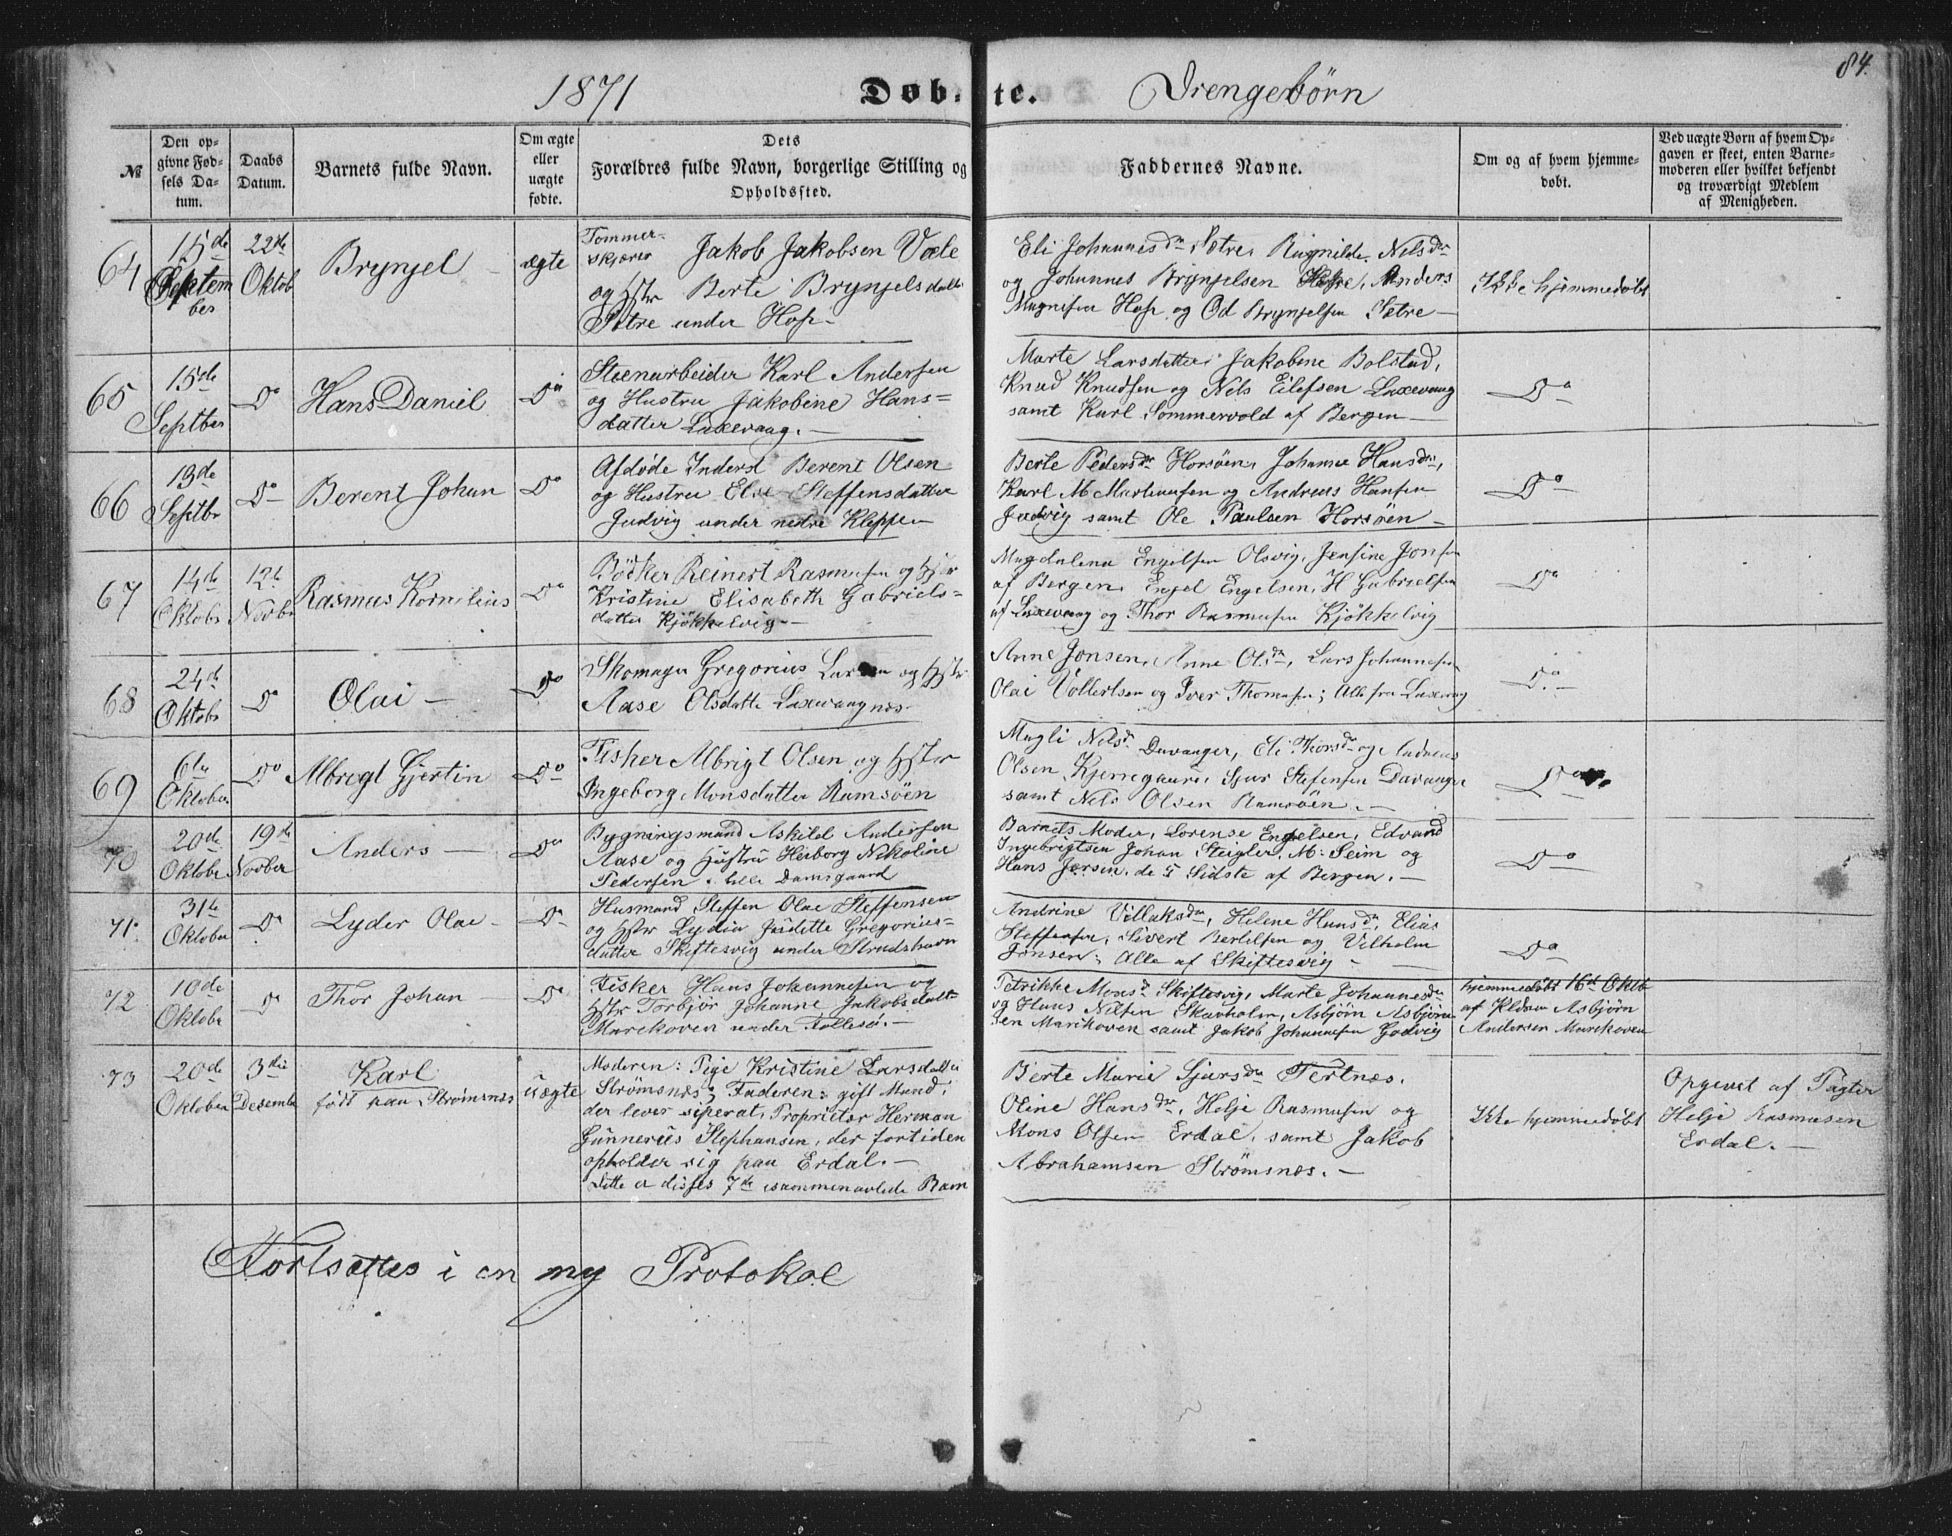 84.
1871 Døbte. Drengebørn
№
Den opgivne Fødsels Datum.
Daabs Datum.
Barnets fulde Navn.
Om ægte eller uægte fødte.
Dets Forældres fulde Navn, borgerlige Stilling og Opholdssted.
Faddernes Navne.
Om og af hvem hjemmedøbt.
Ved uægte Børn af hvem Opgaven er skeet, enten Barnemoderen eller hvilket bekjendt og troværdigt Medlem af Menigheden.
64
15de Septem ber
22de Oktob
Brynjel
ægte
Tommer-
skjærer Jakob Jakobsen Væle
og Hstr Berte Brynjelsdatt
Sætre under Hop
Eli Johannesdtr Sætre, Ragnilde Nelsdtr
og Johannes Brynjelsen, Anders
Magnesen Hop og Od Brynjelsen Setre
Ikke hjemmedøbt
65
15de Septbr
Do
Hans Daniel
Do
Steenarbeider Karl Andersen
og Hustru Jakobine Hans=
datter Laxevaag.
Marte Larsdatter, Jakobine Bolstad,
Knud Knudsen og Nels Eilefsen Laxevaag
samt Karl Sommervold af Bergen
Do
66
13de Septbr
Do
Berent Johan
Do
Afdøde Inderst Berent Olsen
og Hustru Else Steffensdatter
Judvig under nedre Kleppe
Berte Pedersdtr Horsøen, Johanne Hansdtr,
Karl M Martinusen og Andreas Hansen
Jadvig samt Ole Paulsen Horsøen
Do
67
14de Oktobr
12te Novbr
Rasmus Kornelius
Do
Bødker Reinert Rasmusen og Hstr
Kristine Elisabeth Gabriels=
datter Kjøkkelvig
Magdalena Engelsen Olsvig, Jensine Jonsen
af Bergen, Engel Engelsen, H Gabrielsen
af Laxevaag og Thor Rasmusen Kjøkkelvig
Do
68
24de Oktobr
Do
Olai
Do
Skomager Gregorius Larsen og Hstr
Aase Olsdatte Laxevaagnes
Anne Jonsen, Anne Olsdtr, Lars Johannesen
Olai Vollertsen og Iver Thomasen; Alle fra Laxevaag
Do
69
6te Oktober
Do
Albregt Gjertin
Do
Fisker Albrigt Olsen og Hstr
Ingeborg Monsdatter Ramsøen
Magli Nelsdr Davanger, Eli Thorsdr og Andreas
Olsen Kjerregaure, Sjur Stefensen Davanger
samt Nels Olsen Ramsøen.
Do
70
20de Oktobr
19de Novber
Anders
Do
Bygningsmand Askild Andersen
Aase og Hustru Herborg Nikoline
Pedersen. lille Damsgaard
Barnets Moder, Lorense Engelsen, Edvard
Ingebrigtsen Johan Steigler, M. Seim og
Hans Jersin. de 5 Sidste af Bergen.
Do
71.
31te Oktober
Do
Lyder Olai
Do
Husmand Steffen Olai Steffensen
og Hstr Lydia Judette Gregories=
datter Skiftesvig under Strudshavn
Andrine Villaksdtr, Helene Hansdtr, Elias
Steffensen, Sivert Bertelsen og Vilhelm
Jonsen; Alle af Skiftesvig
Do
72
10de Oktobr
Do
Thor Johan
Do
Fisker Hans Johannesen og
Hstr Torbjør Johanne Jakobsdatt
Marikoven under Follesø.
Petrikke Monsdr Skiftesvig, Marte Johannesdtr
og Hans Nilsen Skarholm, Asbjørn Asbjørn
sen Marikoven samt Jakob Johannesen Godvig
hjemmedøbt 16de Oktb
af Asbjørn
Andersen Marikoven
73
20de Oktober
3die Desembr
Karl
født paa Strømsnes
uægte
Moderen: Pige Kristine Larsdatter
Strømsnes; Faderen: gift Mand,
der lever seperat, Proprietær Herman
Gunnerius Stephansen, der fortiden
opholder sig paa Erdal.
Dette er disses 7de isammenavlede Barn
Berte Marie Sjursdtr Tertnes,
Oline Hansdtr, Helje Rasmusen og
Mons Olsen Erdal, samt Jakob
Abrahamsen Strømsnes.
Ikke hjemmedøbt
Opgivet af Fagter
Helje Rasmusen
Erdal.
Fortsættes i en ny Protokol